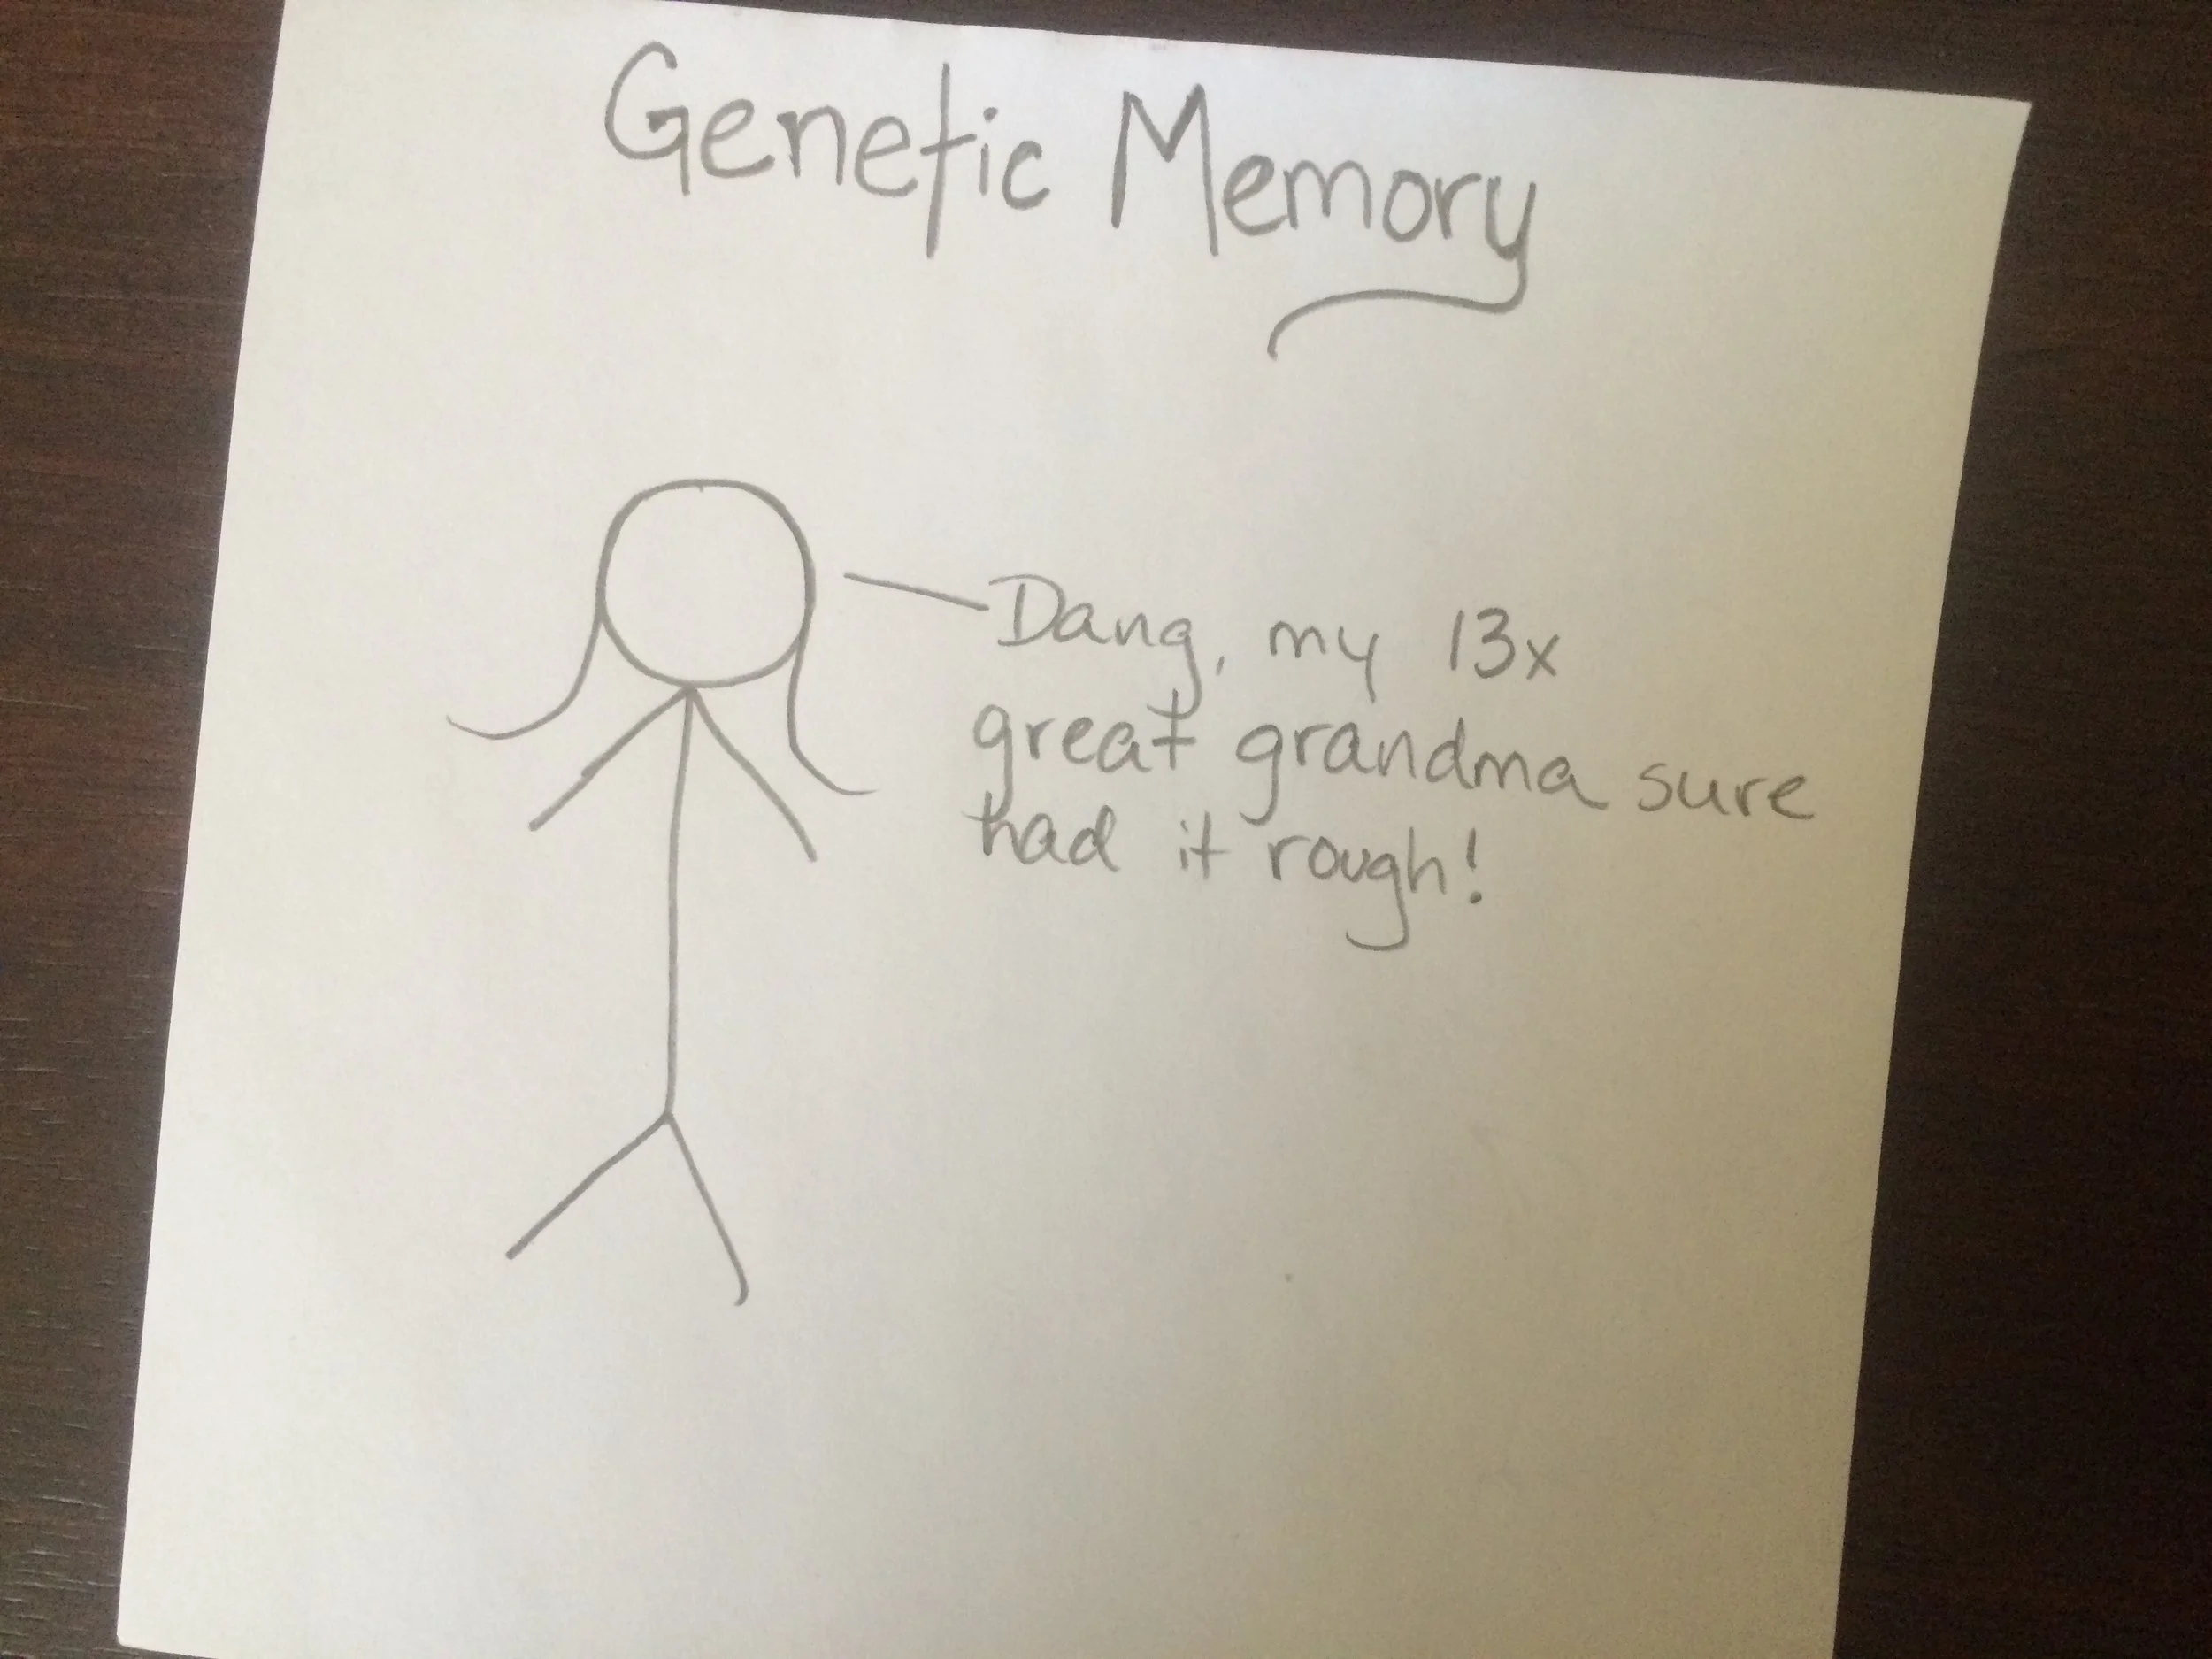 Genetic Memory
Dang, my 13x
great grandma sure
had it rough!